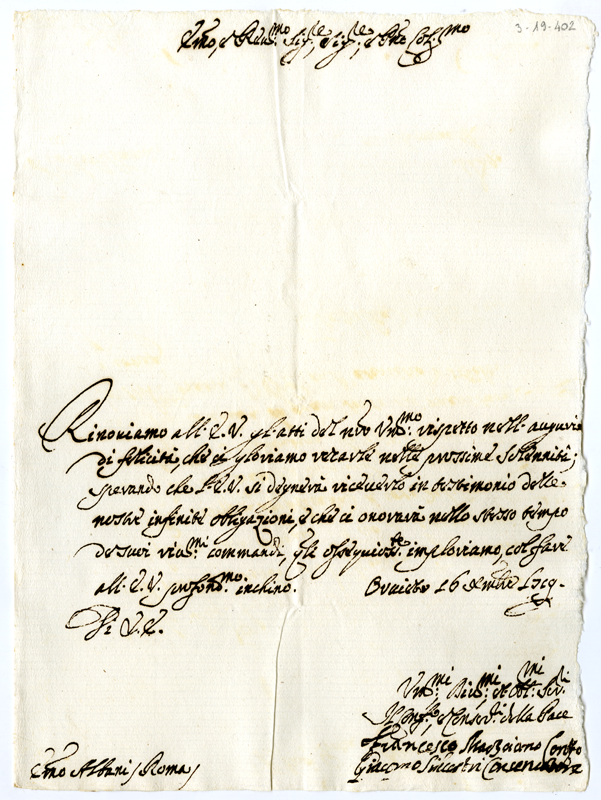 3-19-402
Emo, e Revmo Sigre, Sigre, e Pne Colmo
Rinoviamo all' E. V. gl' atti del nro Vmmo rispetto nell' augurio
di felicità, che ci gloriamo recarle nelle prossime Solennità;
sperando che l' E. V. si degnerà riceverlo in testimonio delle
nostre infinite obligazioni, e che ci onorarà nello stesso tempo
de suoi rivmi commandi, gli osseqite imploriamo, col fare
all' E. V. profondmo inchino. Orvieto 16 Xmbre
Di V. E.
Vmmi Divmi et Obmi Servi
Il Confre e Conservri della Pace
Francesco Marziano Confro
Giacomo Silvestri Conservatore
Emo Albani / Roma /